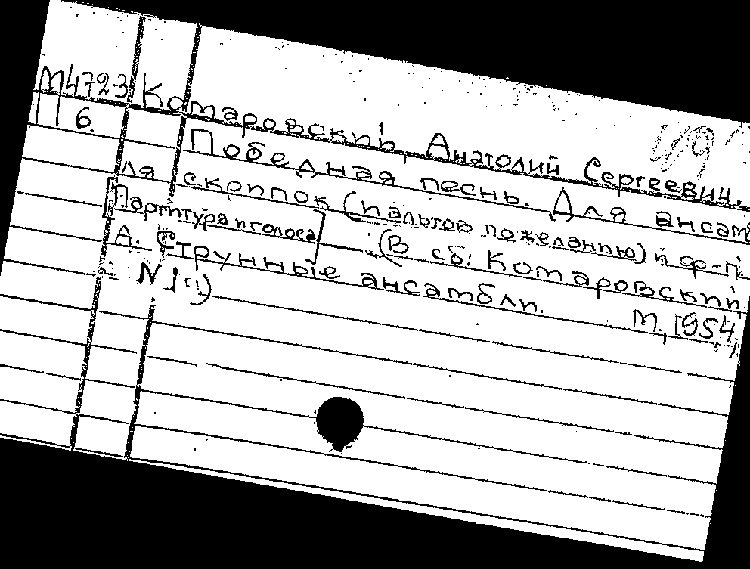 М4723 Комаровский, Анатолий Сергеевич.
П 6 Победная песнь. Для ансам
ля скрипок (и альтов по желанию) и ф-п
[Партитура и голоса] (В сб: Комаровский,
А. Струнные ансамбли. М, 1954,
N 1)